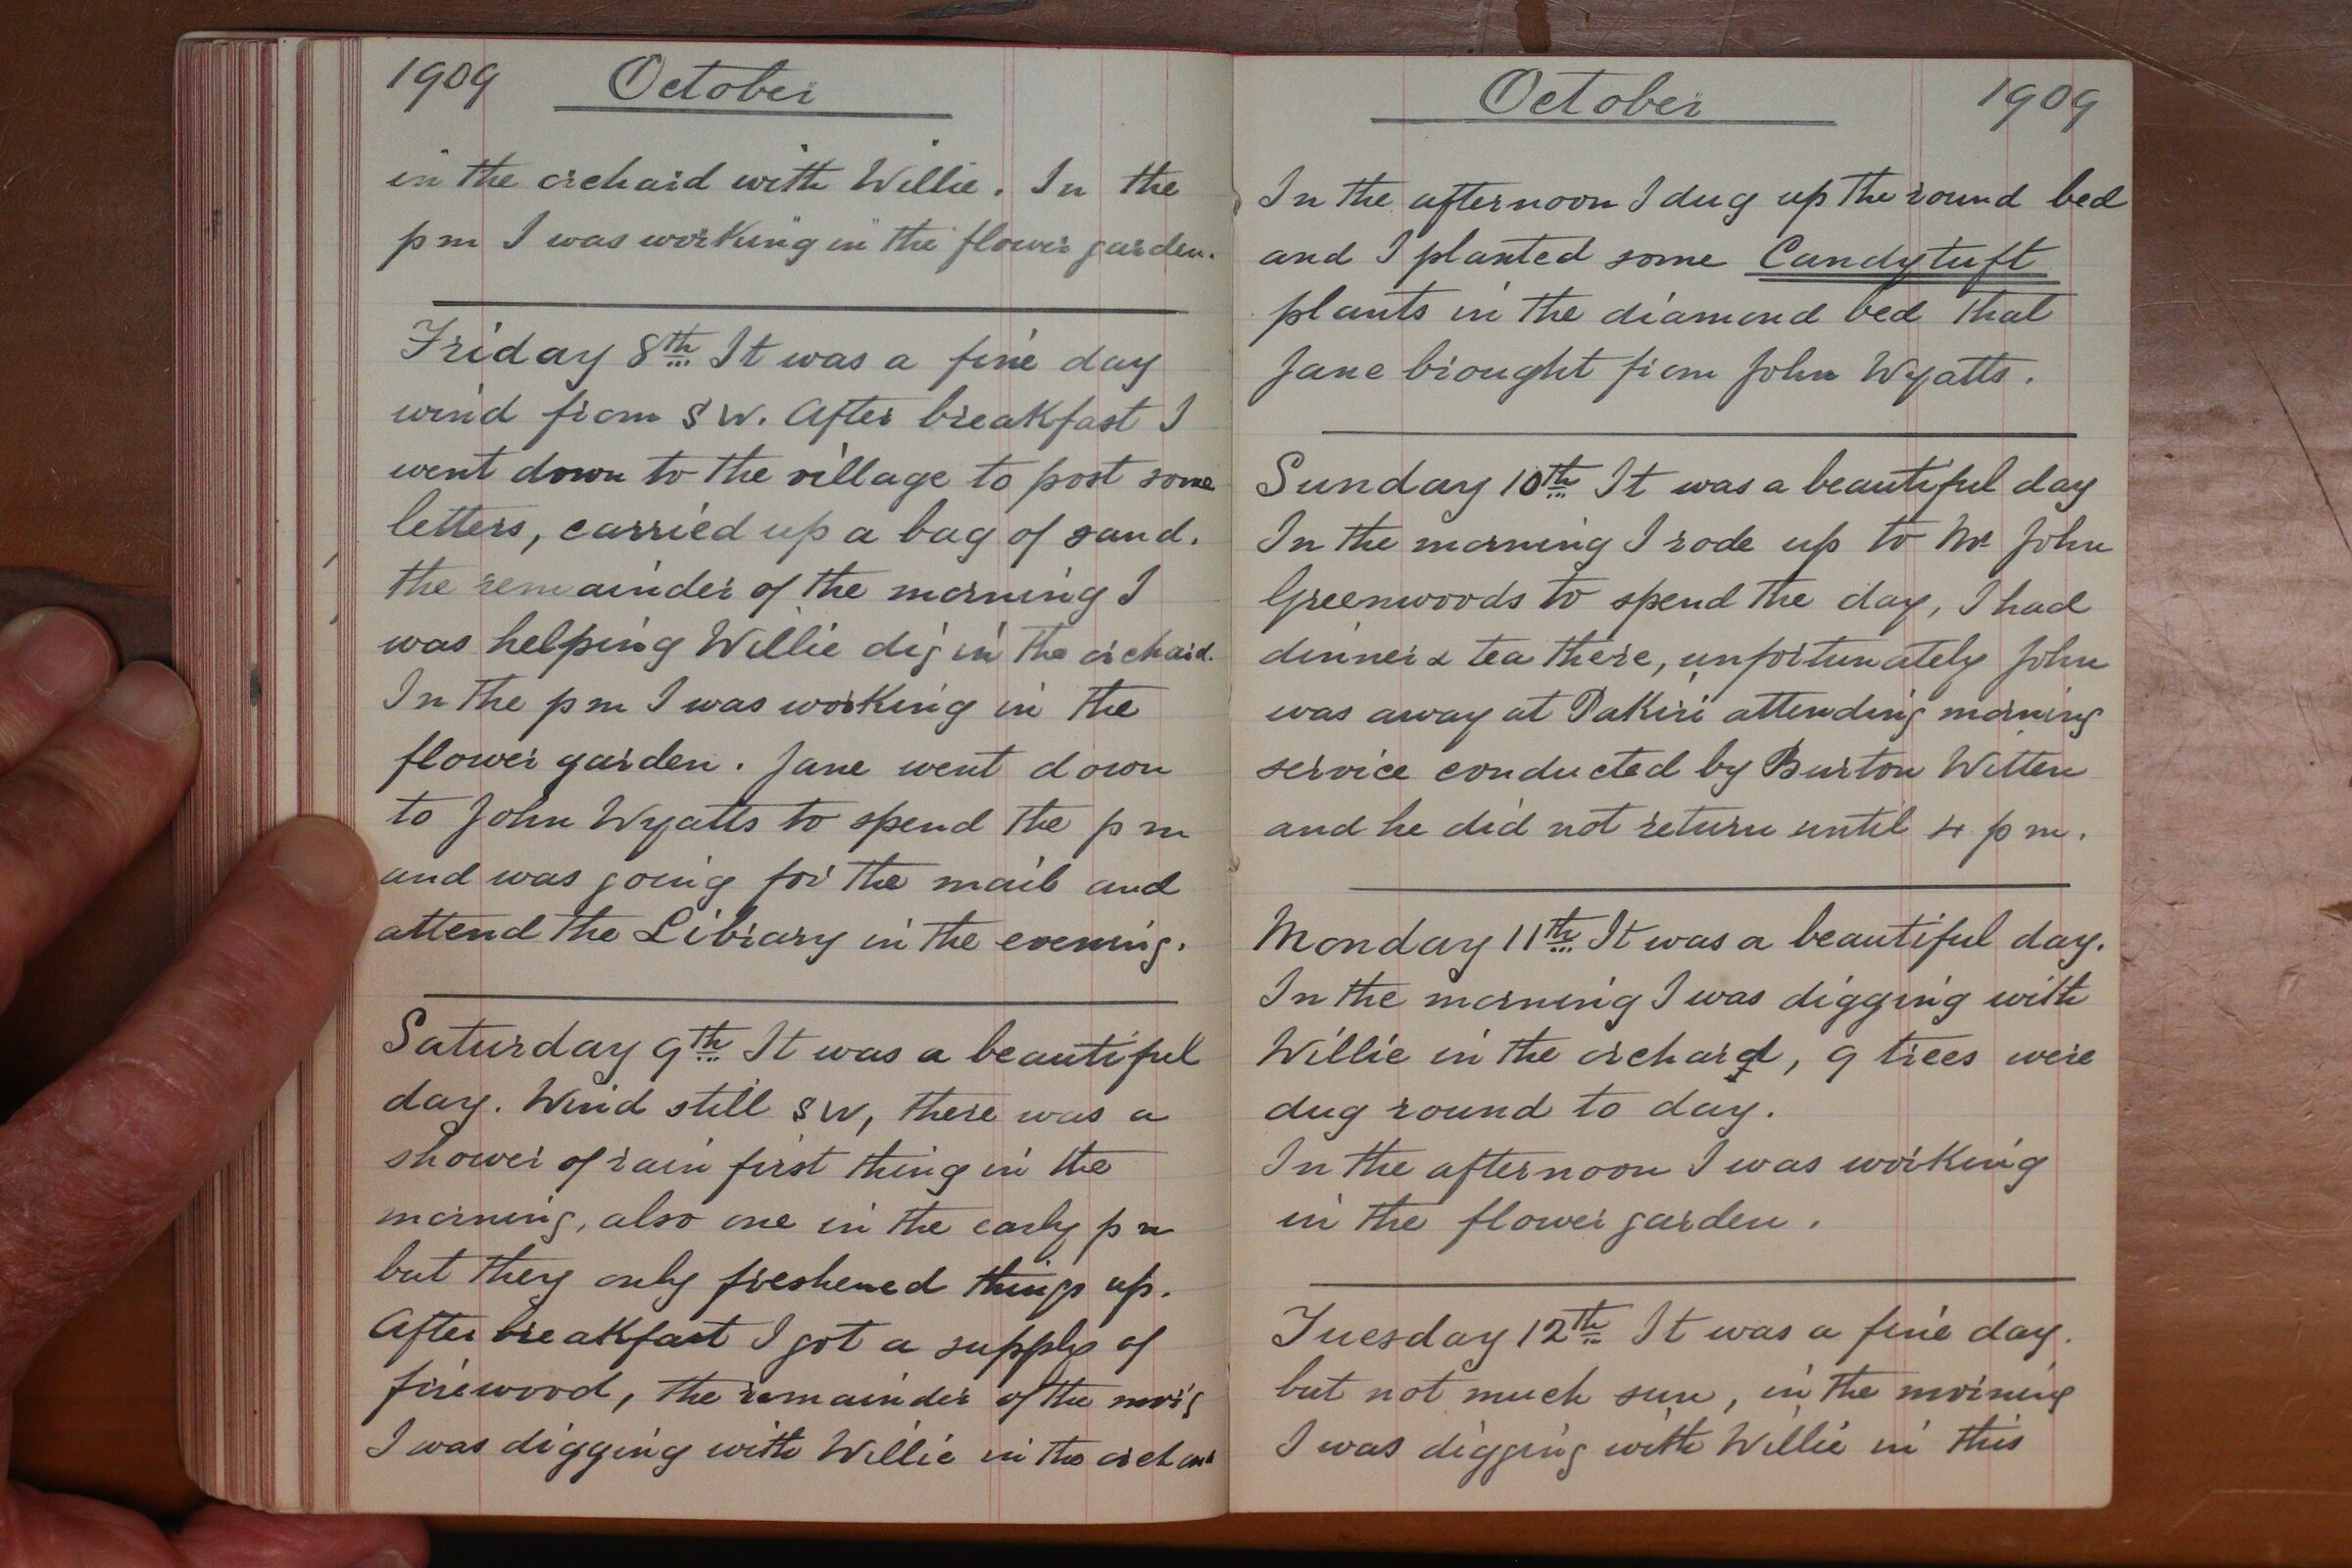 1909 October
in the orchard with Willie. In the
pm I was working in the flower garden.
Friday 8th It was a fine day
wind from SW. After breakfast I
went down to the village to post some
letters, carried up a bag of sand.
the remainder of the morning I
was helping Willie dig in the orchard.
In the pm I was working in the
flower garden. Jane went down
to John Wyatts to spend the pm
and was going for the mail and
attend the Library in the evening.
Saturday 9th It was a beautiful
day. Wind still SW, there was a
shower of rain first thing in the
morning, also one in the early pm
but they only freshened things up.
After breakfast I got a supply of
firewood, the remainder of the morg
I was digging with Willie in the orchard
October 1909
In the afternoon I dug up the round bed
and I planted some Candytuft
plants in the diamond bed that
Jane brought from John Wyatts.
Sunday 10th It was a beautiful day
In the morning I rode up to Mr John
Greenwoods to spend the day, I had
dinner & tea there, unfortunately John
was away at Pakiri attending morning
service conducted by Burton Witten
and he did not return until 4 pm.
Monday 11th It was a beautiful day.
In the morning I was digging with
Willie in the orchard, 9 trees were
dug round to day.
In the afternoon I was working
in the flower garden.
Tuesday 12th It was a fine day.
but not much sun, in the morning
I was digging with Willie in this